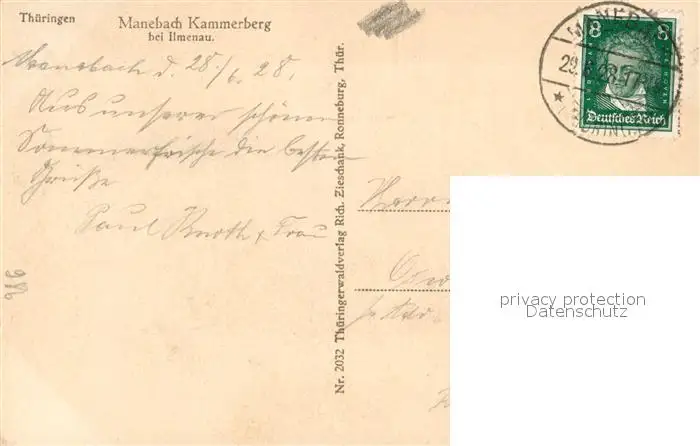 Thüringen
Manebach Kammerberg
bei Ilmenau.
Manebach d. 28./6. 28.
Aus unserer schönen
Sommerfrische die besten
Grüße
Paul Knoth & Frau
Nr. 2032 Thüringerwaldverlag Rich. Zieschank, Ronneburg, Thür.
8 8
Deutsches Reich
Herrn
privacy protection
Datenschutz
926